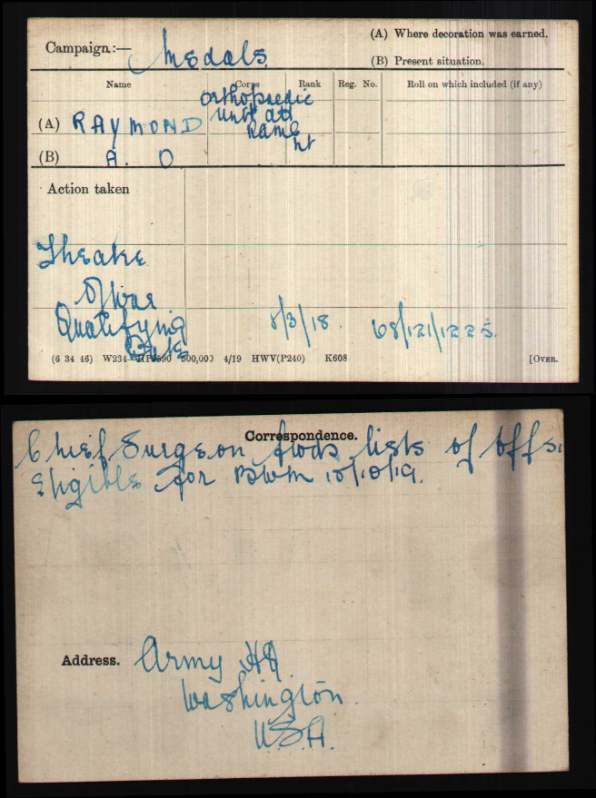 (A) Where decoration was earned.
Campaign:— Medals
(B) Present situation.
Name Corps Rank Reg. No. Roll on which included (if any)
Orthopaedic
(A) RAYMOND Unit att
RAMC
(B) A. O Lt
Action taken
Theatre
of War
Qualifying 8/3/18. 68/121/1225.
Date
(6 34 46) W234 500,000 4/19 HWV(P240) K608 [OVER.
Correspondence.
Chief Surgeon fwds lists of Offs.
Eligible for BWM 10/10/19.
Address. Army HQ.
Washington.
U.S.A.